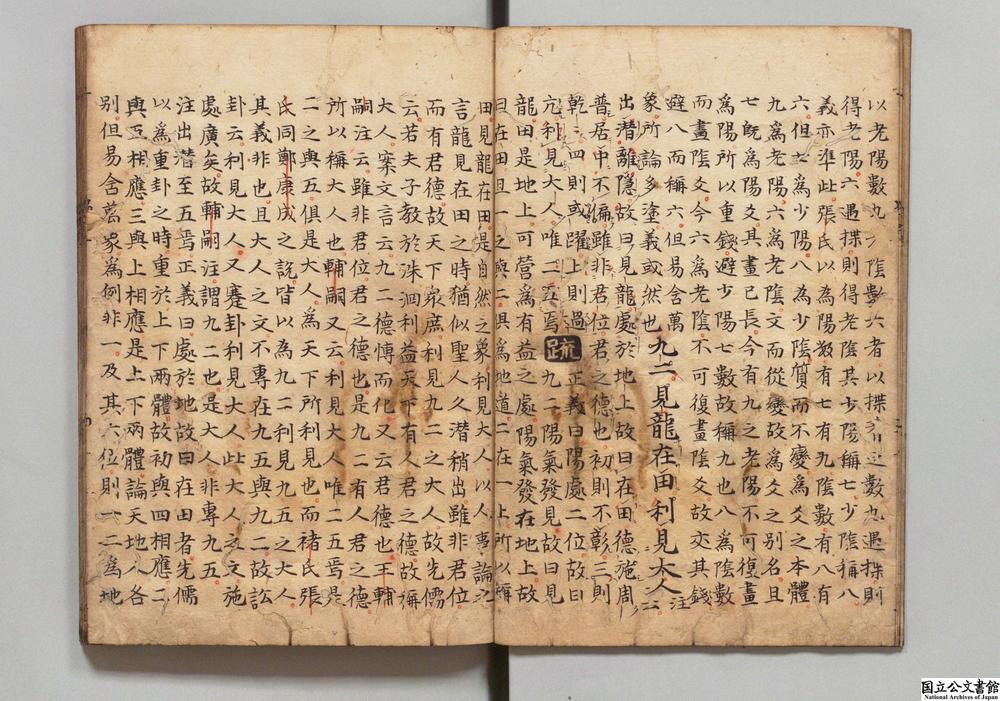 以老陽數九老陰數六者以揲蓍之數九遇揲則
得老陽六遇揲則得老陰其少陽稱七少陰稱八
義亦準此張氏以為陽數有七有九陰數有八有
六但七為少陽八為少陰質而不變為爻之本體
九為老陽六為老陰文而從變故為爻之別名且
七既為陽爻其畫已長今有九之老陽不可復畫
為陽所以重錢避少陽七數故稱九也八為陰數
而畫陰爻今六為老陰不可復畫陰爻故交其錢
避八而稱六但易舍萬
象所論多塗義或然也
九二見龍在田利見大人注
出潛離隱故曰見龍處於地上故曰在田德施周
普居中不偏雖非君位君之德也初則不彰三則
乾〻四則或躍上則過
亢利見大人唯二五焉
疏
正義曰陽處二位故曰
九二陽氣發見故曰見
龍田是地上可營為有益之處陽氣發在地上故
曰在田且一之與二俱為地道二在一上所以稱
田見龍在田是自然之象利見大人以人事論之
言龍見在田之時猶似聖人久潛稍出雖非君位
而有君德故天下衆庶利見九二之大人故先儒
云若夫子教於洙泗利益天下有人君之德故稱
大人案文言云九二德博而化又云君德也王輔
嗣注云雖非君位君之德也是九二有人君之德
所以稱大人也輔嗣又云利見大人唯二五焉是
二之與五俱是大人為天下所利見也而褚氏張
氏同鄭康成之說皆以為九二利見九五之大人
其義非也且大人之文不專在九五與九二故訟
卦云利見大人又蹇卦利見大人此大人之文施
處廣矣故輔嗣注謂九二也是大人非專九五
注出潛至五焉正義曰處於地故曰在田者先儒
以為重卦之時重於上下兩體故初與四相應二
與五相應三與上相應是上下兩體論天地人各
別但易舍萬象為例非一及其六位則一二為地
国立公文書館
National Archives of Japan